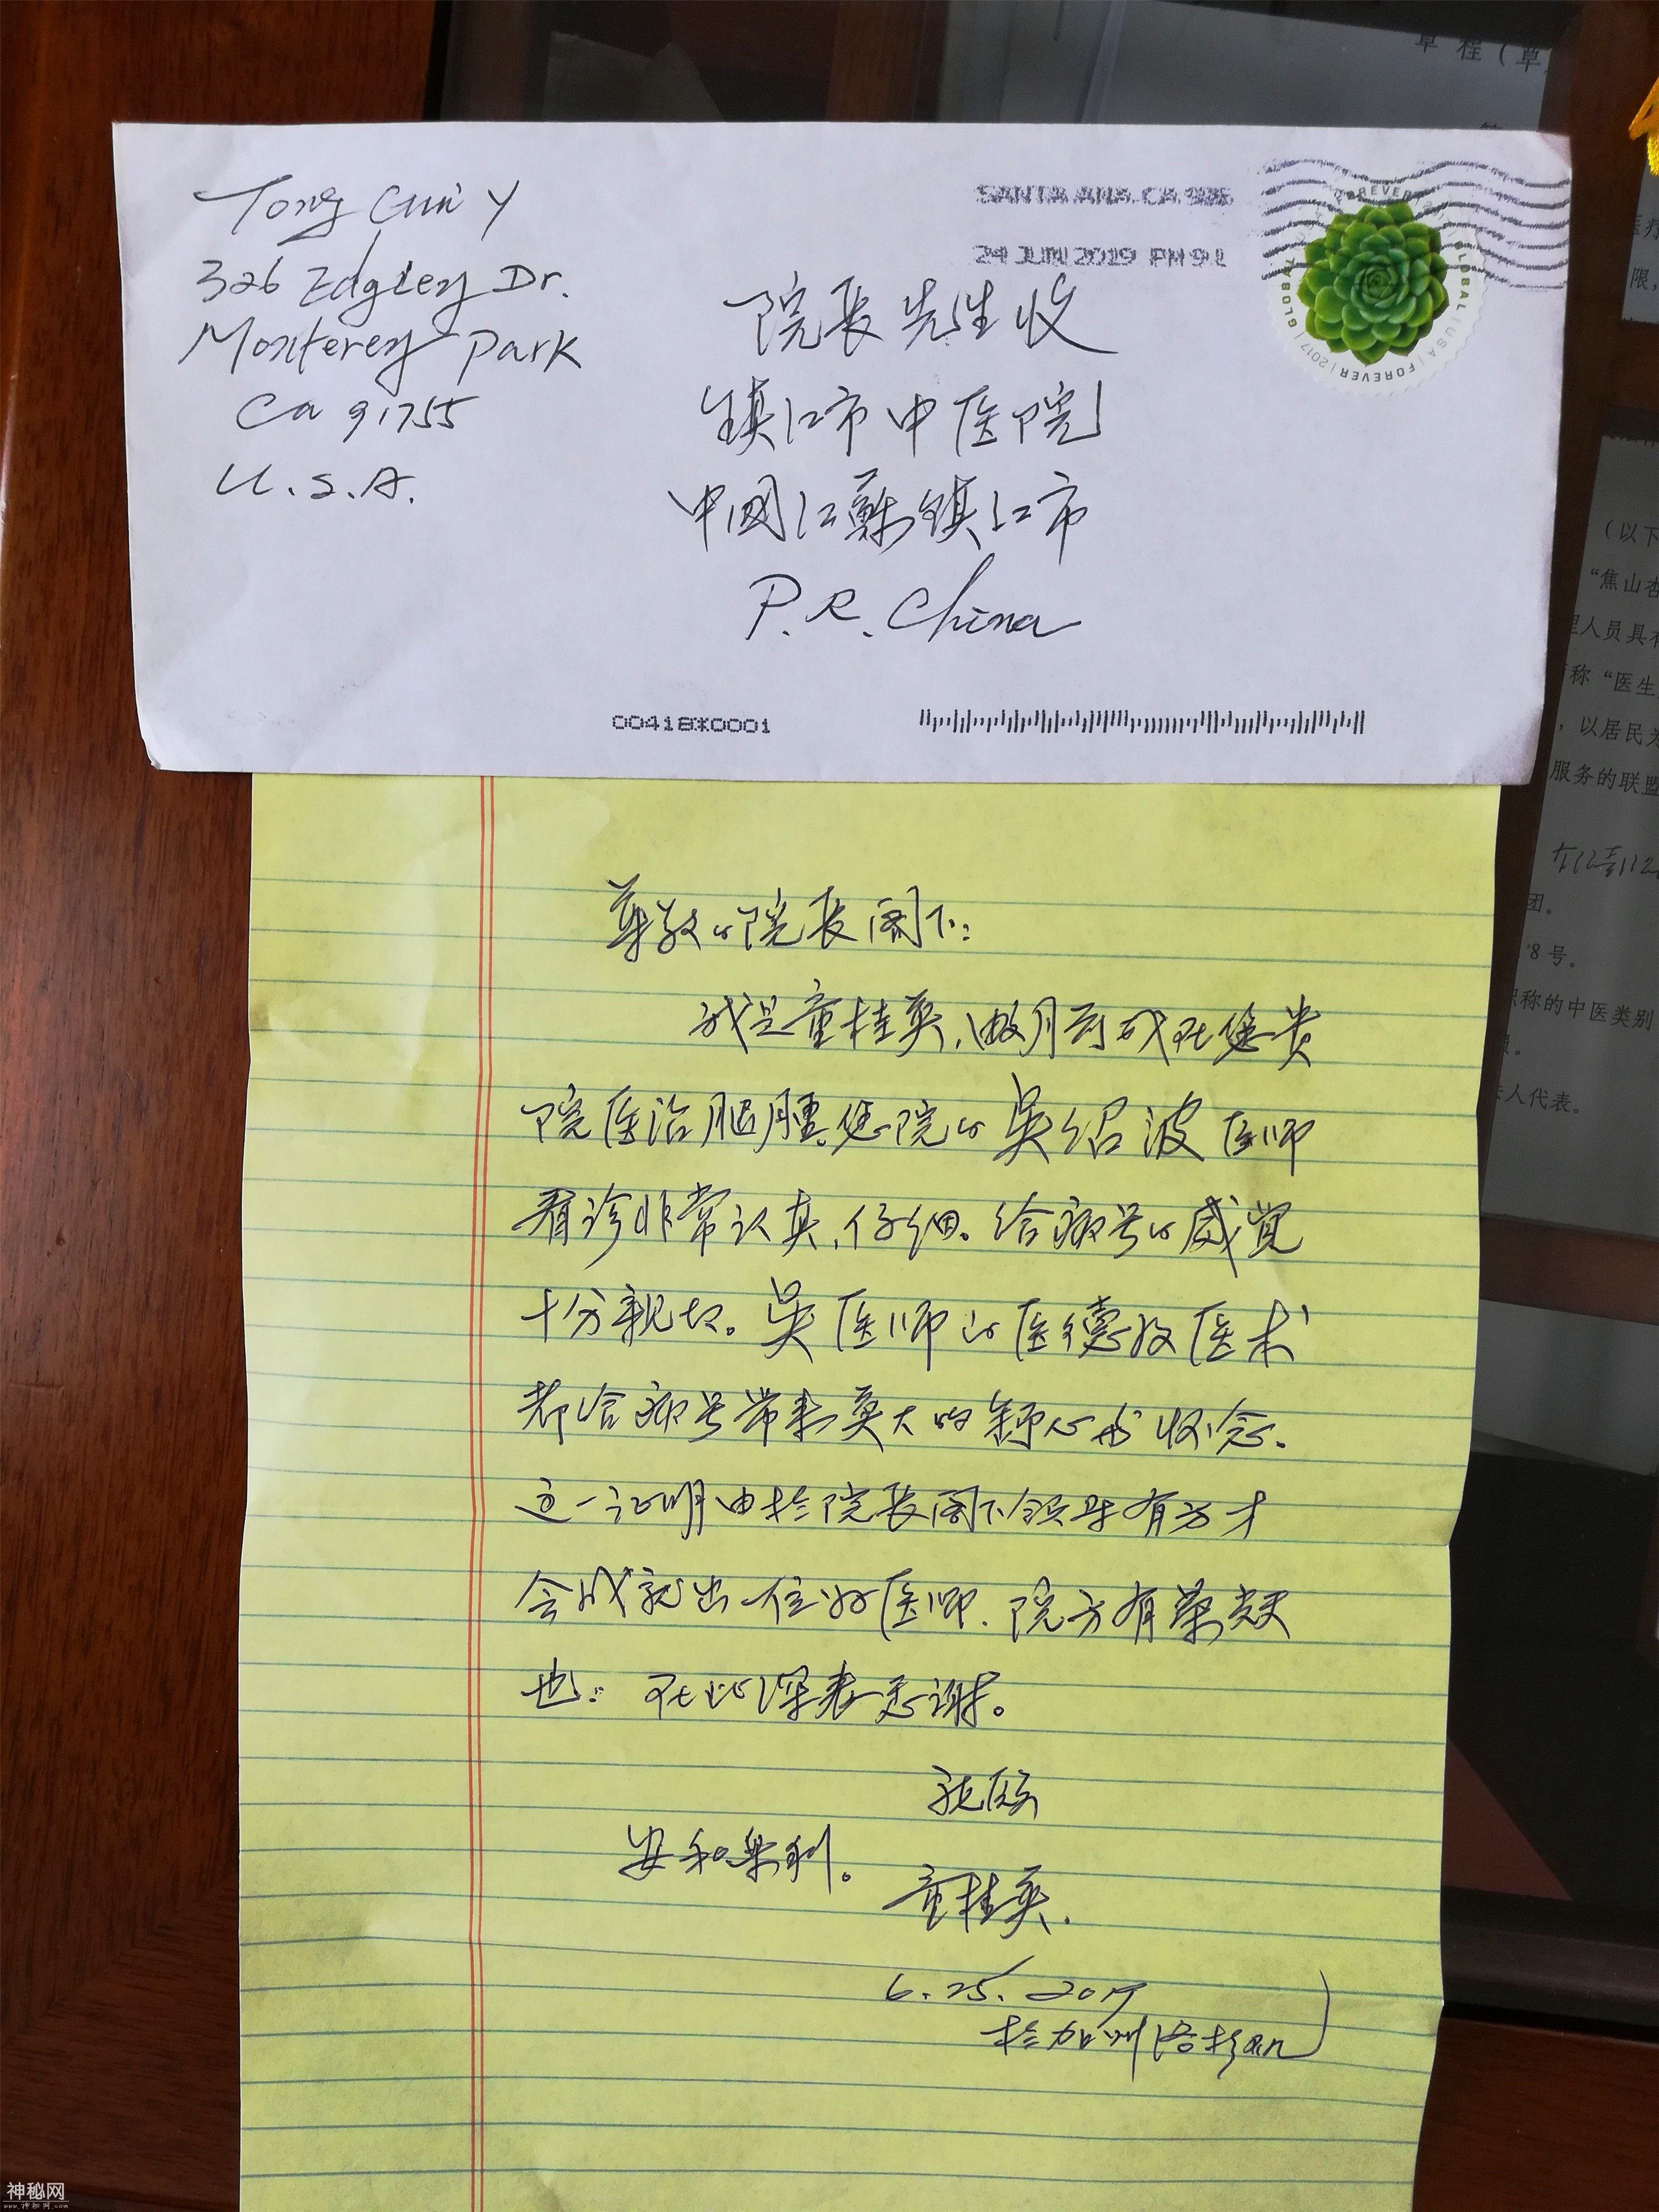 Tong Guii Y
326 Edgley Dr.
Monterey Park
Ca 91755
U.S.A.
SANTA ANA CA 926
24 JUN 2019 PM 9 L
FOREVER
GLOBAL | USA | FOREVER | 2017 | GLOBAL
院长先生收
镇江市中医院
中國江蘇镇江市
P.R. China
00418*0001
尊敬的院长阁下:
我是童桂英,做月前我在您贵
院医治腿腫,您院的吴绍波医师
看诊非常认真、仔细。给病号的感觉
十分親切。吴医师的医德及医术
都给病号带来莫大的舒心和怀念.
这一证明由於院长阁下领导有方才
会成就出一位好医师.院方有榮焉
也. 在此深表感谢。
祝颐
安和樂利。
童桂英.
6.25.2019
於加州洛杉矶
章程(草
医疗
限,
(以下
“焦山杏
理人员具有
称“医生
,以居民为
服务的联盟
团。
8号。
职称的中医类别
法人代表。
神秘网